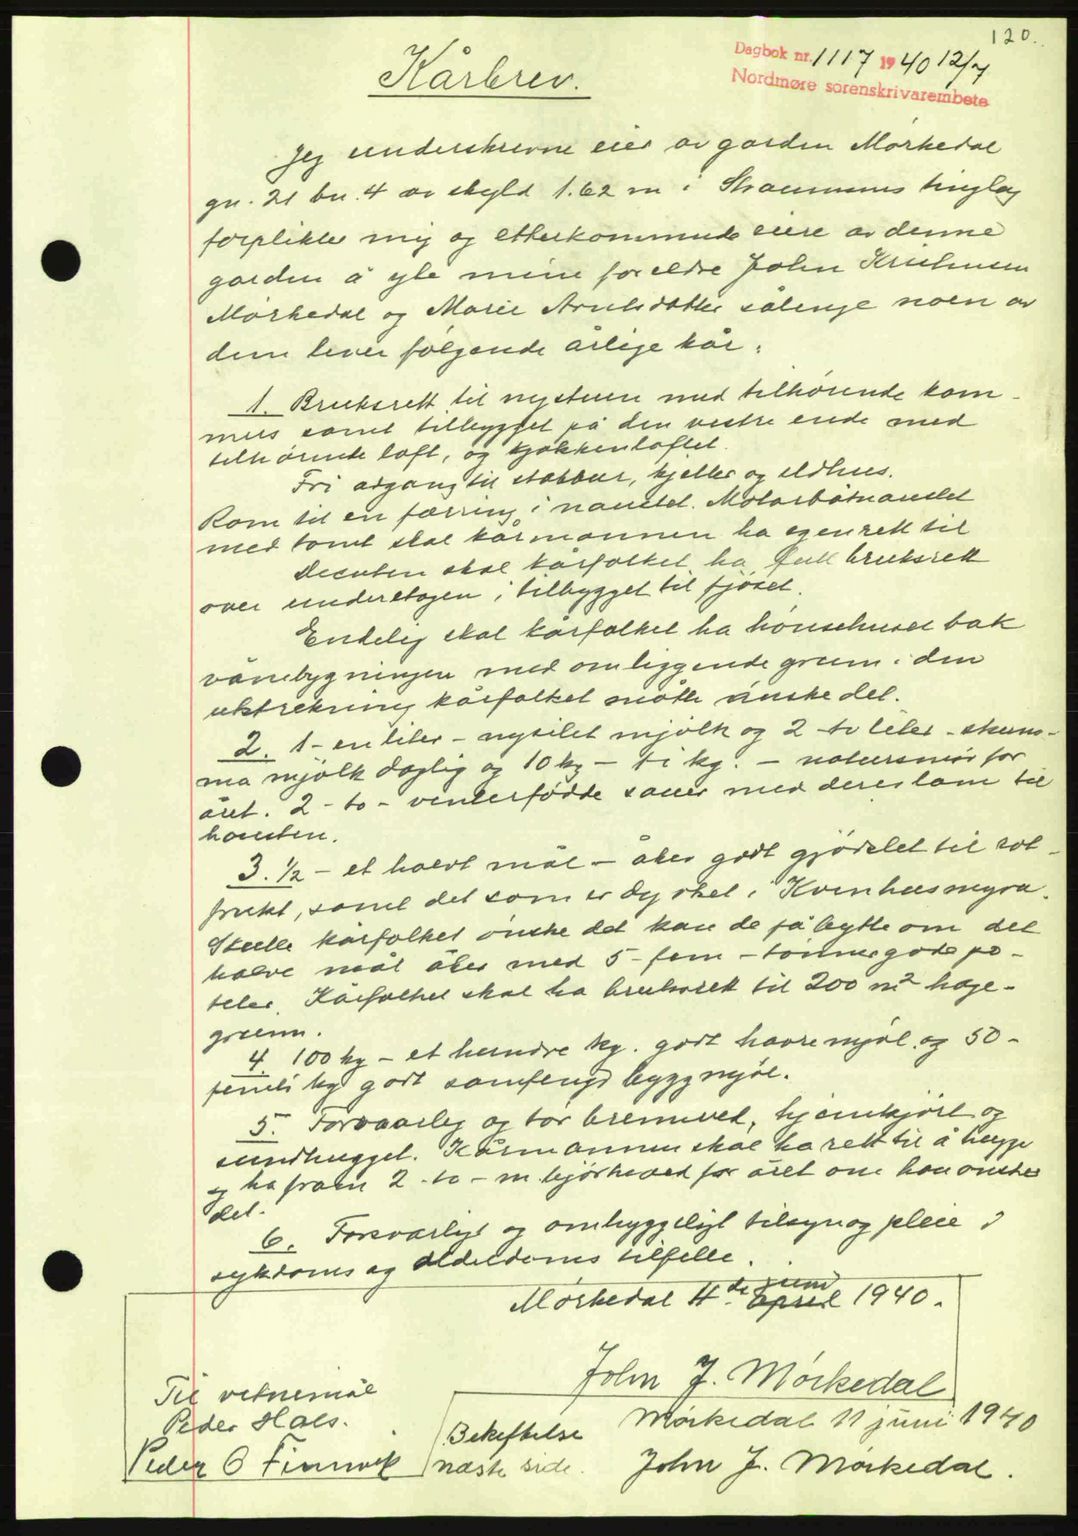 120.
Dagbok nr. 1117 1940 12/7
Nordmøre sorenskrivarembete
Kårbrev.
Jeg underskrevne eier av garden Mørkedal
gn. 21 bn. 4 av skyld 1.62 m i Straumsnes tinglag
forplikter mig og etterkommende eiere av denne
garden å yte mine foreldre John Kristensen
Mørkedal og Marie Arntsdatter sålenge noen av
dem lever følgende årlige kår:
1. Bruksrett til nystuen med tilhørende kam-
mers samt tilbygget på den vestre ende med
tilhørende loft, og kjøkkenloftet.
Fri adgang til stabbur, kjeller og eldhus.
Rom til en færing i naustet. Motorbåtnaustet
med tomt skal kårmannen ha egenrett til
Desuten skal kårfolket ha full bruksrett
over underetagen i tilbygget til fjøset.
Endelig skal kårfolket ha hønsehuset bak
vånebygningen med omliggende grunn i den
utstrekning kårfolket måtte ønske det.
2. 1 - en liter - nysilet mjølk og 2 - to liter - skum-
ma mjølk daglig og 10 kg - ti kg. - natursmør for
året. 2 - to - vinterfødde sauer med deres lam til
høusten.
3. 1/2 - et halvt mål - åker godt gjødslet til rot-
frukt, samt det som er dyrket i Kvenhusmyra.
Skulle kårfolket ønske det kan de få bytte om det
halve mål åker med 5 - fem - tønner gode po-
teter. Kårfolket skal ha bruksrett til 200 m² hage-
grunn.
4. 100 kg - et hundre kg. godt havremjøl og 50 -
femti kg godt samfengt byggmjøl.
5. Forsvarlig og tør brennved, hjemkjørt og
sundhugget. Kårmannen skal ha rett til å hugge
og ta fram 2 - to - m bjørkeved for året om han ønsker
det.
6. Forsvarlig og omhyggeligt tilsyn og pleie i
sykdoms og alderdoms tilfelle.
Mørkedal 4de april juni 1940.
John J. Mørkedal
Til vitnemål
Peder Hals.
Peder O Finnvik
Bekreftelse
næste side.
Mørkedal 11 juni 1940
John J. Mørkedal.